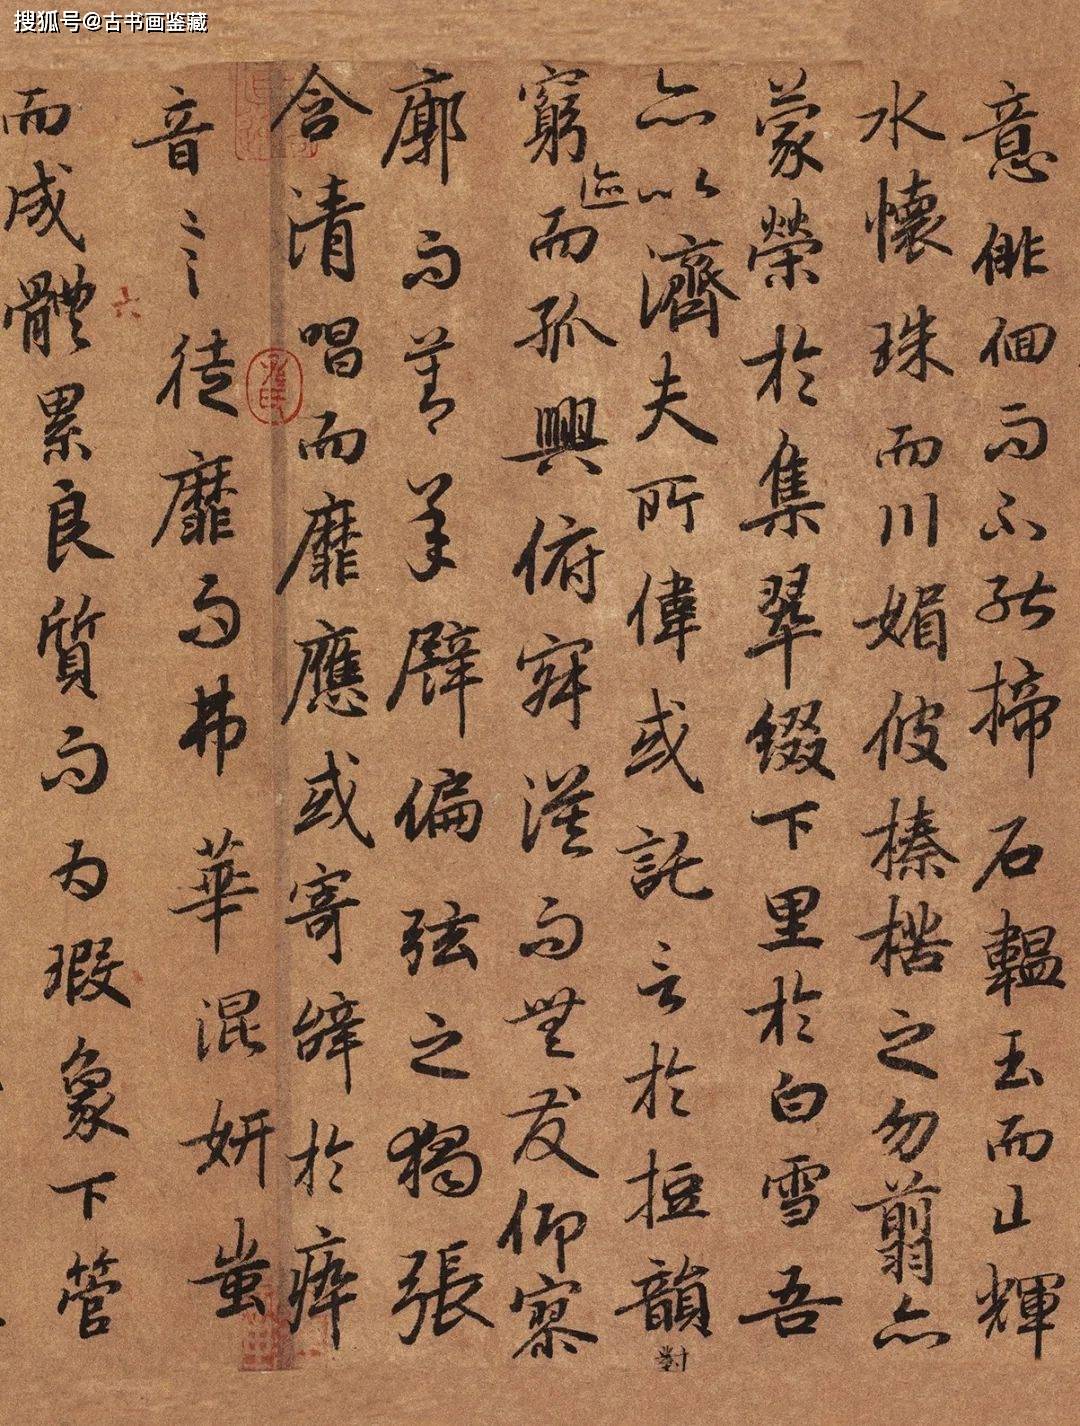 搜狐号@古书画鉴藏
意俳佪而不能揥石韞玉而山輝
水懷珠而川媚彼榛楛之勿翦亦
蒙榮於集翠綴下里於白雪吾
亦以濟夫所偉或託言於短韻
對
迹
窮而孤興俯寂漠而無友仰寥
廓而莫承譬偏弦之獨張
含清唱而靡應或寄辭於瘁
音言徒靡而弗華混妍蚩
而成體累良質而為瑕象下管
六